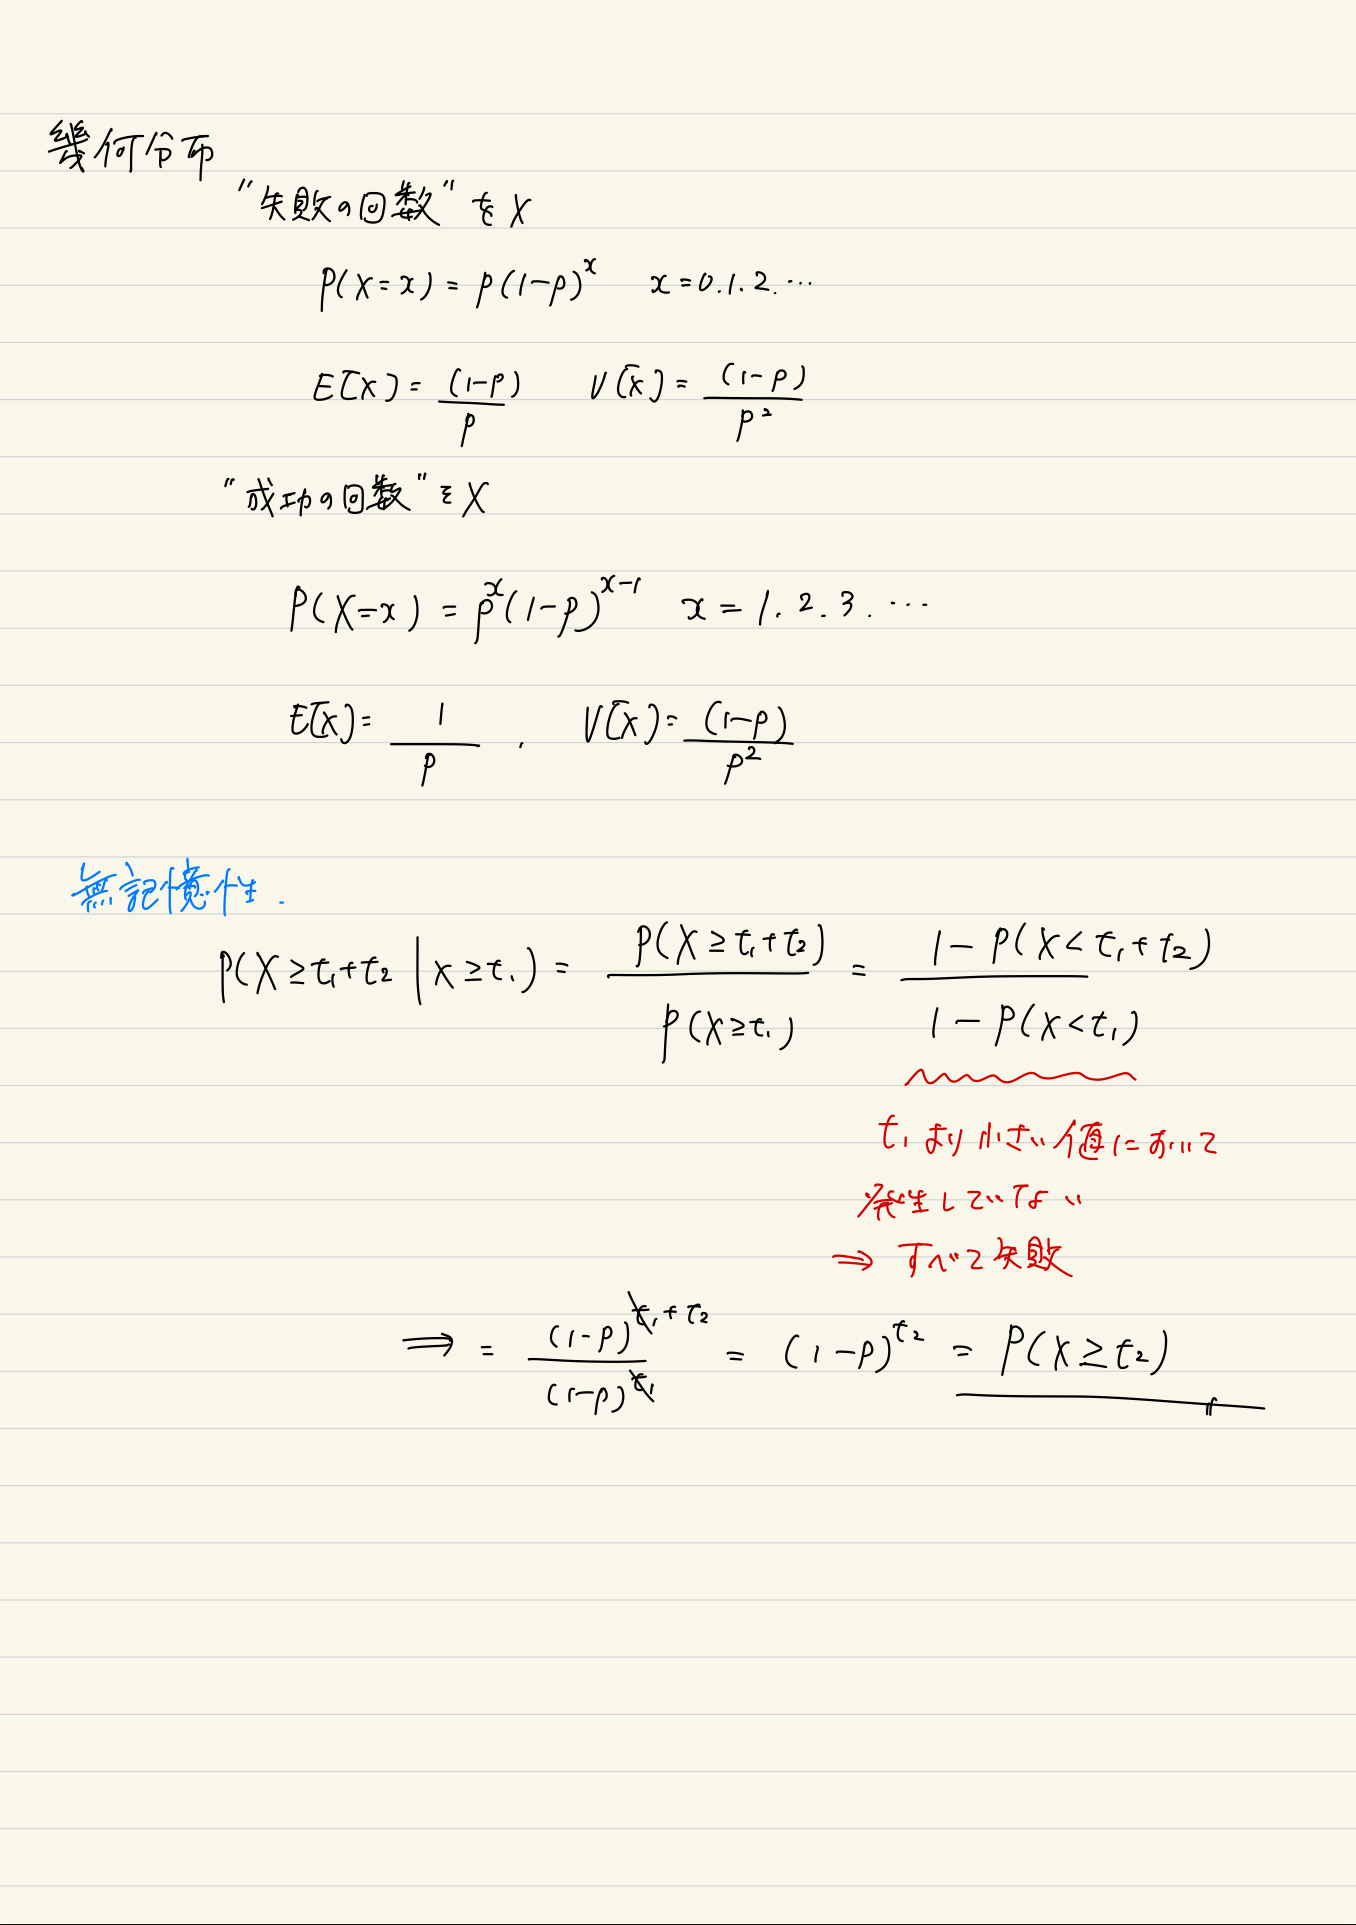 幾何分布
"失敗の回数" を X
P(X=x) = p(1-p)^x x=0.1.2.…
E[X] = (1-p)/p V[X] = (1-p)/p²
"成功の回数" を X
P(X=x) = p^x(1-p)^{x-1} x = 1.2.3.…
E[X] = 1/p , V[X] = (1-p)/p²
無記憶性.
P(X≥t₁+t₂ | X≥t₁) = P(X≥t₁+t₂)/P(X≥t₁) = 1-P(X<t₁+t₂)/1-P(X<t₁)
t₁より小さい値において
発生していてない
⇒ すべて失敗
⇒ = (1-p)^{t₁+t₂}/(1-p)^{t₁} = (1-p)^{t₂} = P(X≥t₂)